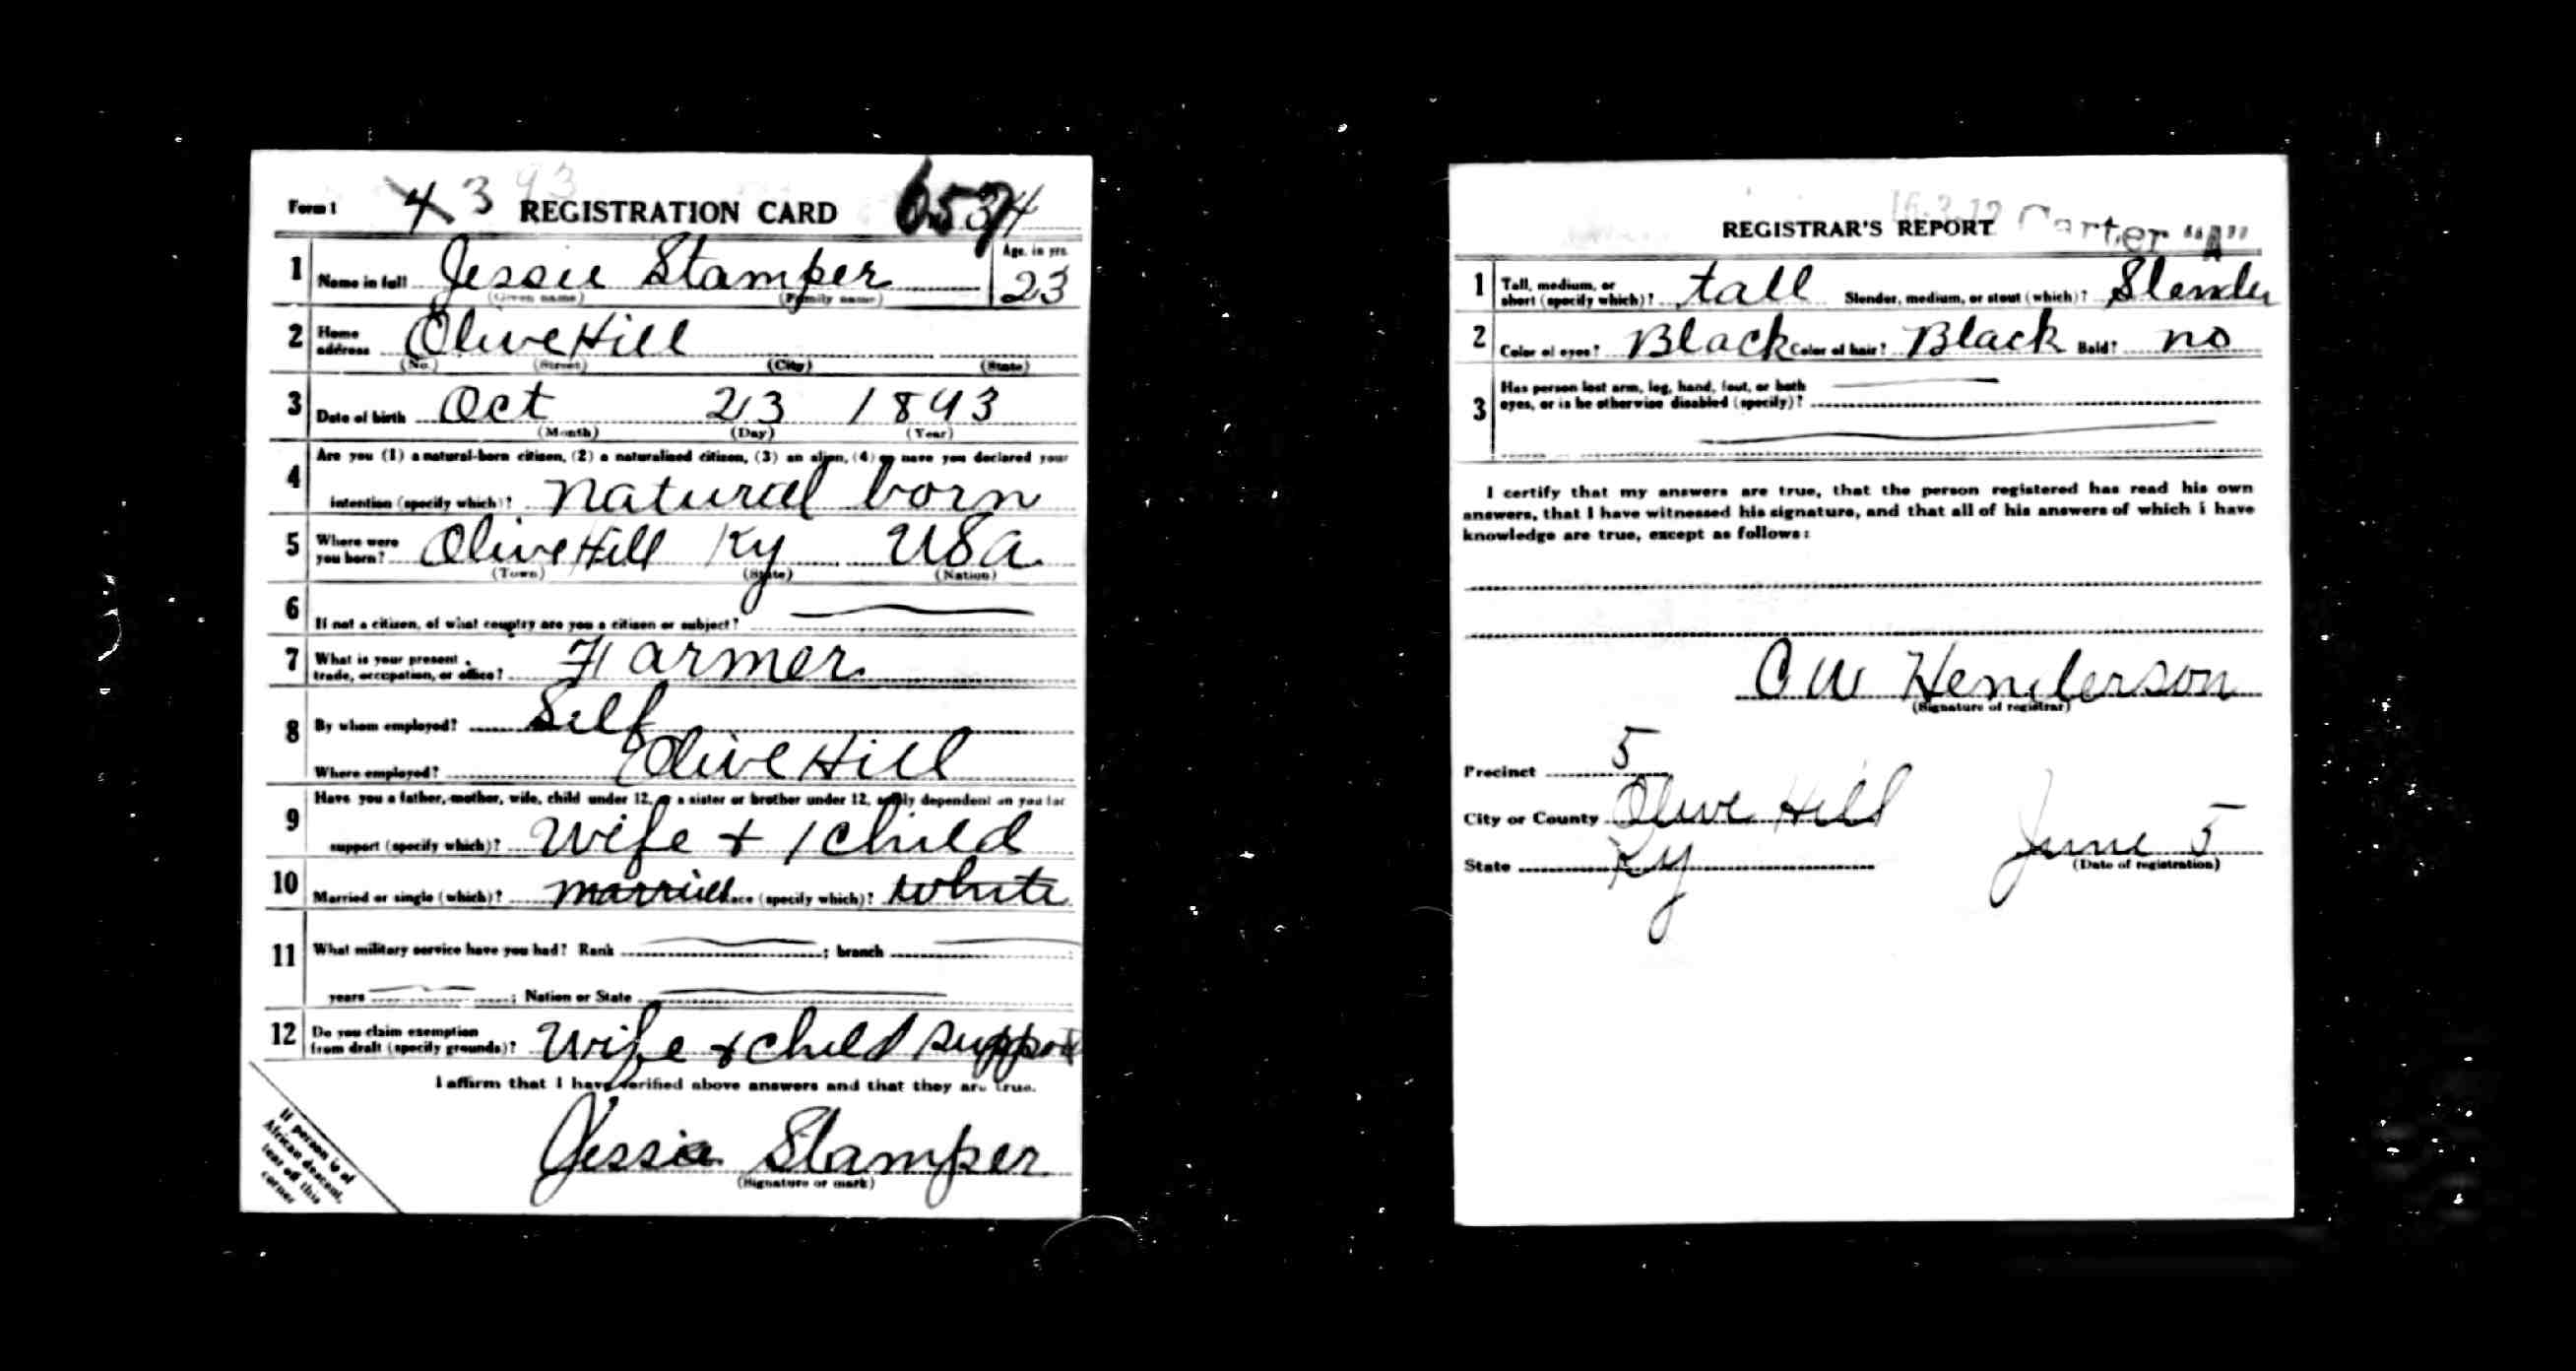 Form 1 43 93 REGISTRATION CARD
1 Name in full Jessie Stamper Age, in yrs. 23
(Given name) (Family name)
2 Home address Olive Hill
(No.) (Street) (City) (State)
3 Date of birth Oct 23 1893
(Month) (Day) (Year)
4 Are you (1) a natural-born citizen, (2) a naturalized citizen, (3) an alien, (4) or have you declared your
intention (specify which)? natural born
5 Where were you born? Olive Hill Ky USA
(Town) (State) (Nation)
6 If not a citizen, of what country are you a citizen or subject?
7 What is your present trade, occupation, or office? Farmer
8 By whom employed? Self
Where employed? Olive Hill
9 Have you a father, mother, wife, child under 12, or a sister or brother under 12, solely dependent on you for
support (specify which)? Wife + 1 child
10 Married or single (which)? married Race (specify which)? White
11 What military service have you had? Rank ; branch
years ; Nation or State
12 Do you claim exemption from draft (specify grounds)? Wife + child support
I affirm that I have verified above answers and that they are true.
Jessie Stamper
(Signature or mark)
If person is of
African descent,
tear off this
corner
REGISTRAR'S REPORT Carter "A"
1 Tall, medium, or short (specify which)? tall Slender, medium, or stout (which)? Slender
2 Color of eyes? Black Color of hair? Black Bald? no
3 Has person lost arm, leg, hand, foot, or both
eyes, or is he otherwise disabled (specify)?
I certify that my answers are true, that the person registered has read his own
answers, that I have witnessed his signature, and that all of his answers of which I have
knowledge are true, except as follows:
C W Henderson
(Signature of registrar)
Precinct 5
City or County Olive Hill
State Ky June 5
(Date of registration)